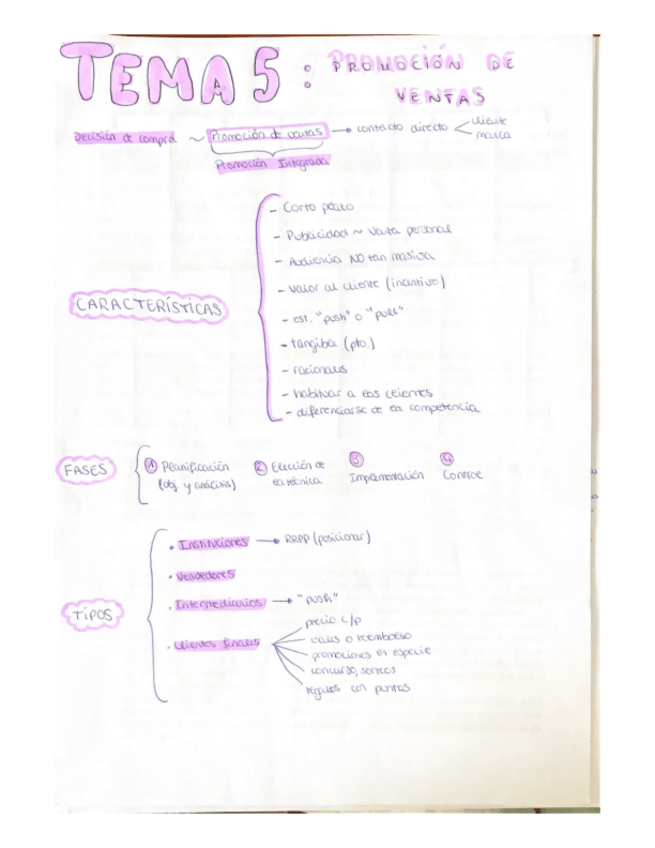 TEMA 5: PROMOCIÓN DE
VENTAS
Decisión de compra ~ Promoción de ventas → contacto directo < cliente
marca
Promoción Integrada
CARACTERÍSTICAS
- Corto plazo
- Publicidad ~ venta personal
- Audiencia NO tan masiva
- Valor al cliente (incentivo)
- est. "push" o "pull"
- tangible (pto.)
- racionales
- habituar a los clientes
- diferenciarse de la competencia
FASES
① Planificación
(obj. y análisis)
② Elección de
la técnica
③ Implementación
④ Control
TIPOS
· Instituciones → RRPP (posicionar)
· Vendedores
· Intermediarios → "push"
· Clientes finales
precio c/p
vales o reembolso
promociones en especie
concurso, sorteos
regalos con puntos